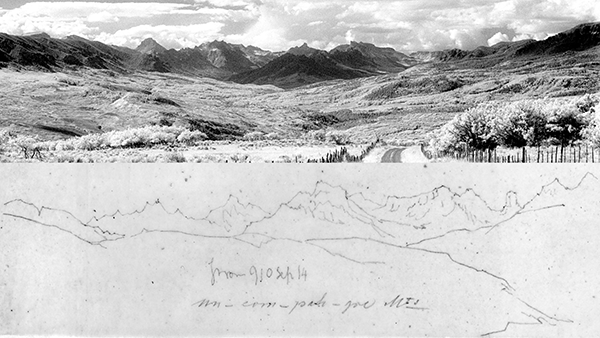 from 910 Sep. 14
un-com-pah-gre Mts